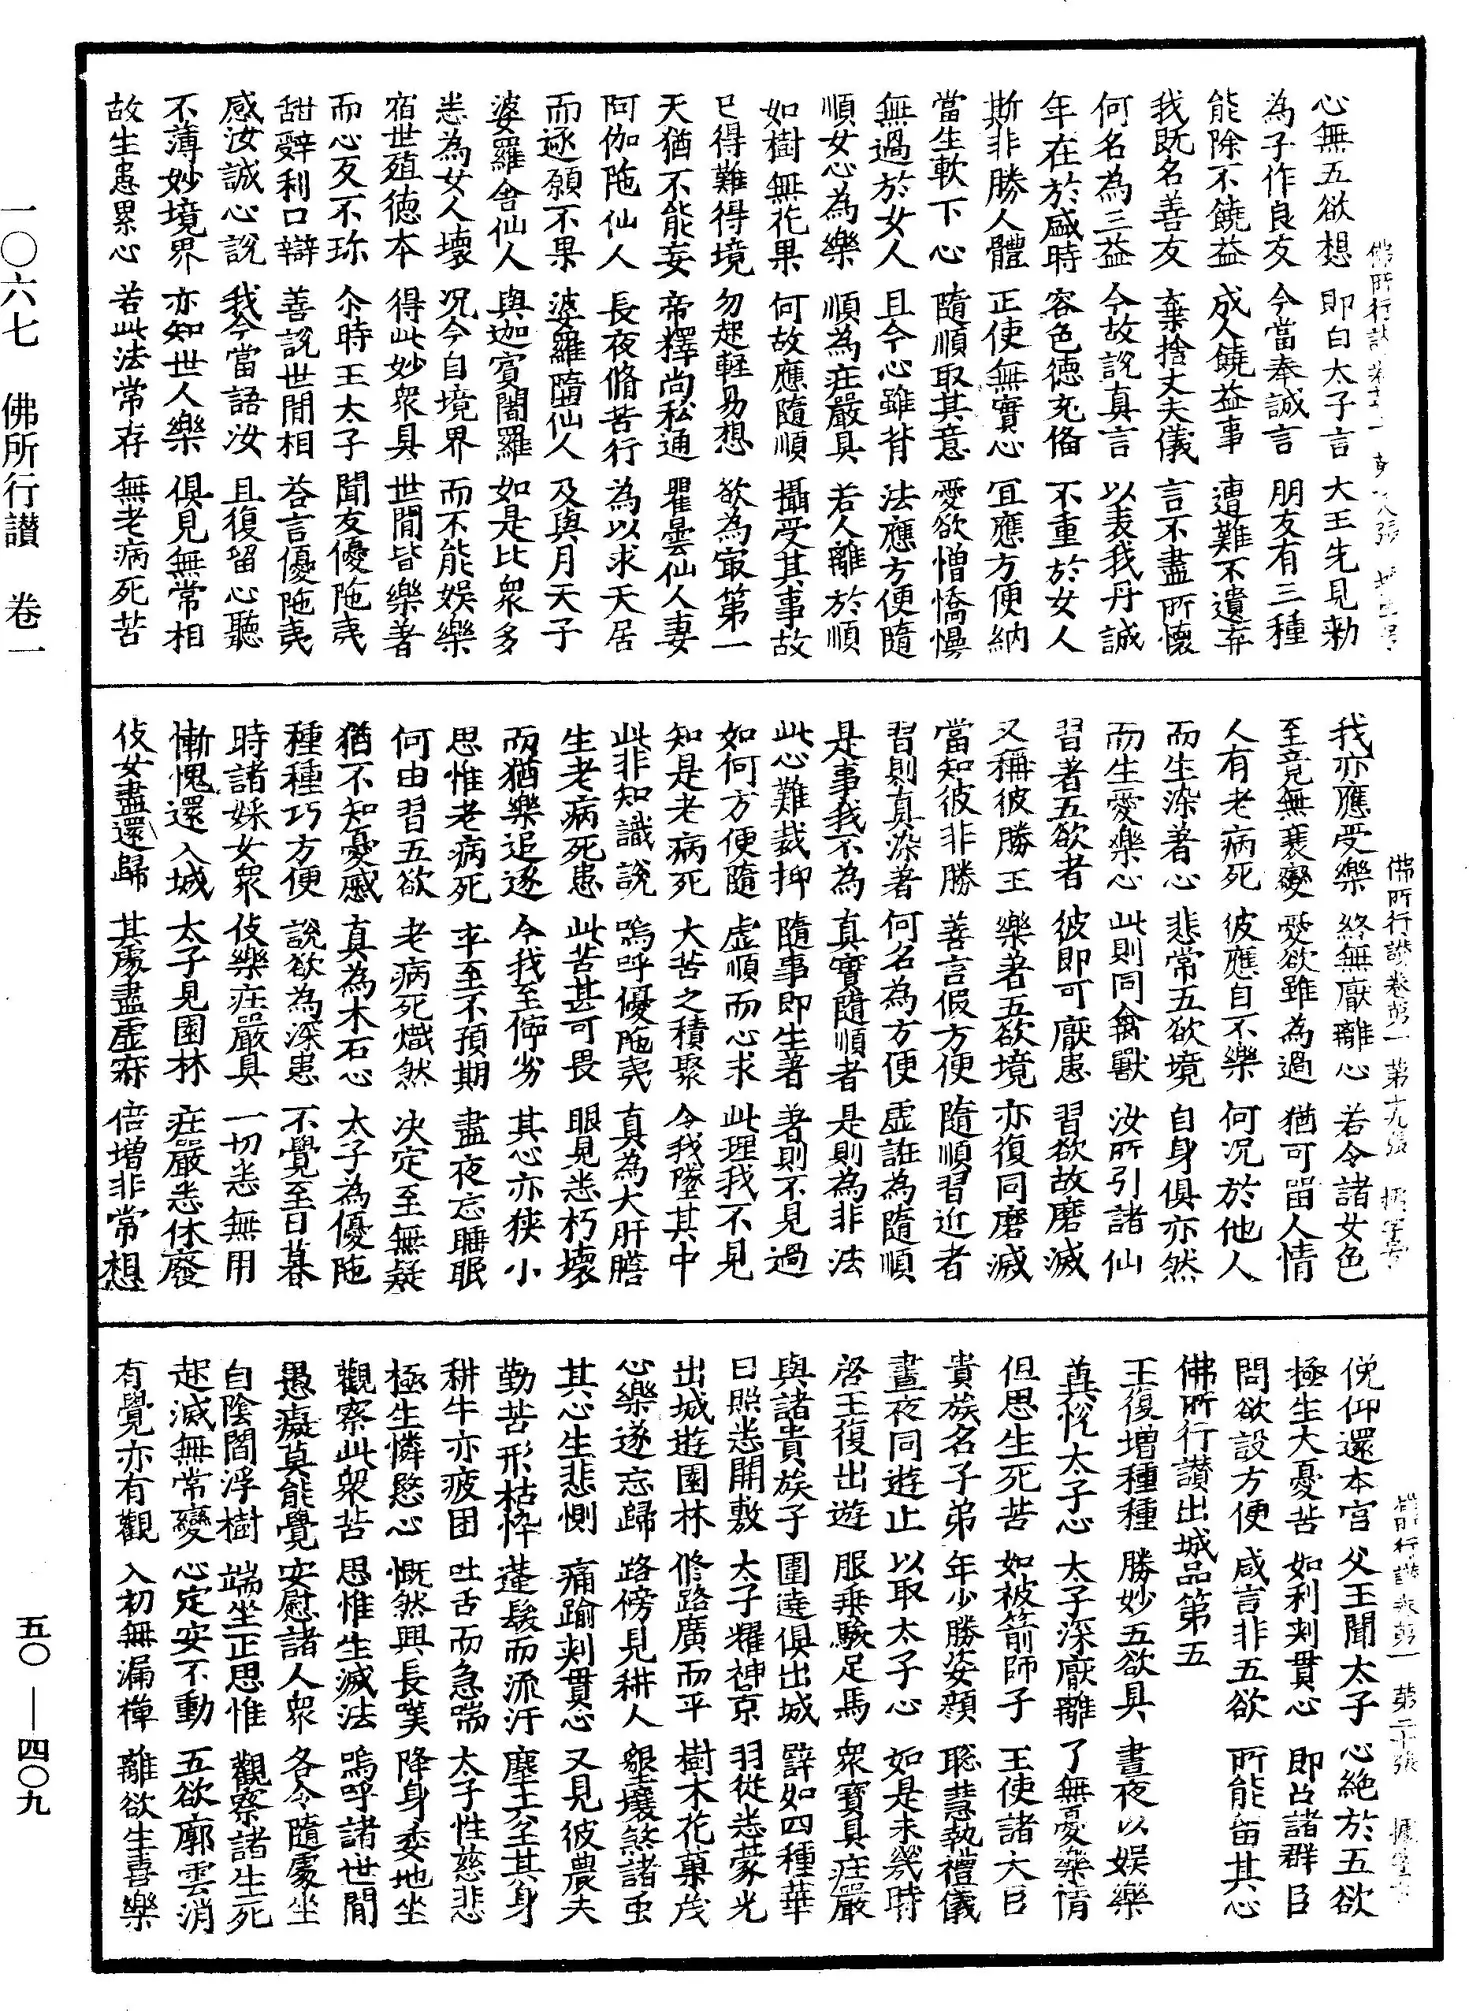 心無五欲想 即白太子言 大王先見勑
為子作良友 今當奉誠言 朋友有三種
能除不饒益 成人饒益事 遭難不遺弃
我既名善友 棄捨丈夫儀 言不盡所懷
何名為三益 今故說真言 以表我丹誠
年在於盛時 容色德充俻 不重於女人
斯非勝人體 正使無實心 冝應方便納
當生軟下心 隨順取其意 愛欲憎憍慢
無過於女人 且今心雖背 法應方便隨
順女心為樂 順為莊嚴具 若人離於順
如樹無花果 何故應隨順 攝受其事故
已得難得境 勿起輕易想 欲為㝡第一
天猶不能妄 帝釋尚私通 瞿曇仙人妻
阿伽陁仙人 長夜脩苦行 為以求天居
而遂願不果 婆羅墮仙人 及與月天子
婆羅舍仙人 與迦賓闍羅 如是比衆多
悉為女人壞 況今自境界 而不能娛樂
宿世殖德本 得此妙衆具 世閒皆樂著
而心反不珎 尒時王太子 聞友優陁夷
甜辭利口辯 善說世閒相 荅言優陁夷
感汝誠心說 我今當語汝 且復留心聽
不薄妙境界 亦知世人樂 俱見無常相
故生患累心 若此法常存 無老病死苦
我亦應受樂 終無厭離心 若令諸女色
至竟無衰變 愛欲雖為過 猶可留人情
人有老病死 彼應自不樂 何況於他人
而生染著心 悲常五欲境 自身俱亦然
而生愛樂心 此則同禽獸 汝所引諸仙
習著五欲者 彼即可厭患 習欲故磨滅
又稱彼勝王 樂著五欲境 亦復同磨滅
當知彼非勝 善言假方便 隨順習近者
習則真染著 何名為方便 虛誑為隨順
是事我不為 真實隨順者 是則為非法
此心難裁抑 隨事即生著 著則不見過
如何方便隨 虛順而心求 此理我不見
知是老病死 大苦之積聚 令我墜其中
此非知識說 嗚呼優陁夷 真為大肝膽
生老病死患 此苦甚可畏 眼見悉朽壞
而猶樂追逐 今我至儜劣 其心亦狹小
思惟老病死 卒至不預期 晝夜忘睡眠
何由習五欲 老病死熾然 决定至無疑
猶不知憂慼 真為木石心 太子為優陁
種種巧方便 說欲為深患 不覺至日暮
時諸婇女衆 伎樂莊嚴具 一切悉無用
慚愧還入城 太子見園林 莊嚴悉休廢
伎女盡還歸 其處盡虛寂 倍增非常想
俛仰還本宮 父王聞太子 心絕於五欲
極生大憂苦 如利刾貫心 即占諸群臣
問欲設方便 咸言非五欲 所能留其心
佛所行讃出城品第五
王復增種種 勝妙五欲具 晝夜以娛樂
冀悅太子心 太子深厭離 了無憂樂情
但思生死苦 如被箭師子 王使諸大臣
貴族名子弟 年少勝姿顏 聡慧執禮儀
晝夜同遊止 以取太子心 如是未幾時
啓王復出遊 服乗駿足馬 衆寶具莊嚴
與諸貴族子 圍遶俱出城 譬如四種華
日照悉開敷 太子耀神京 羽從悉蒙光
出城遊園林 修路廣而平 樹木花菓茂
心樂遂忘歸 路傍見耕人 墾壤煞諸䖝
其心生悲惻 痛踰刾貫心 又見彼農夫
勤苦形枯悴 蓬髮而流汗 塵土坌其身
耕牛亦疲困 吐舌而急喘 太子性慈悲
極生憐愍心 慨然興長嘆 降身委地坐
觀察此衆苦 思惟生滅法 嗚呼諸世閒
愚癡莫能覺 安慰諸人衆 各令隨處坐
自陰閻浮樹 端坐正思惟 觀察諸生死
起滅無常變 心定安不動 五欲廓雲消
有覺亦有觀 入初無漏禪 離欲生喜樂
佛所行讃卷第一 第十九張
佛所行讃卷第一 第二十張
一〇六七 佛所行讃 卷一
五〇—四〇九